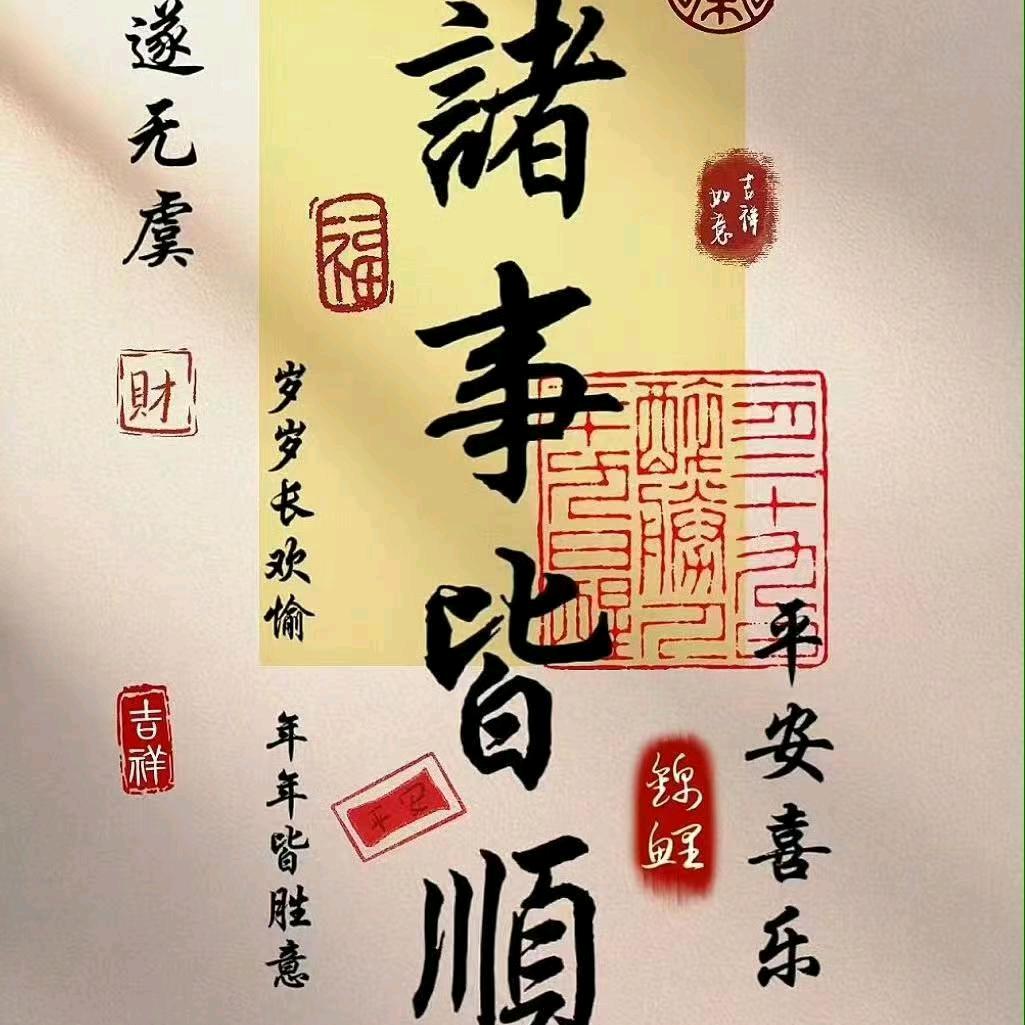 平安喜乐
吉祥
如意
錦鲤
諸事皆順
福
平安
岁岁长欢愉
年年皆胜意
遂无虞
財
吉祥